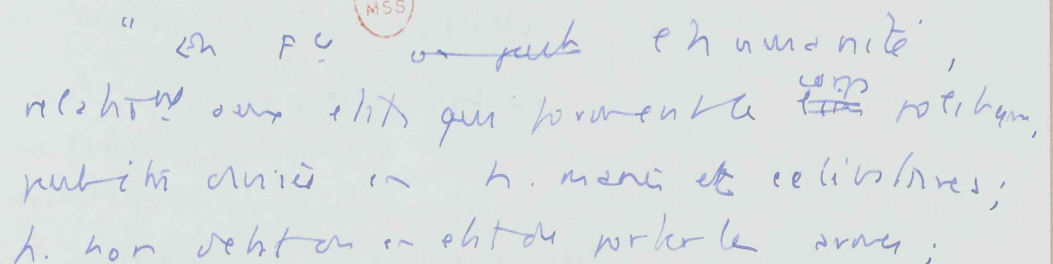 MSS
" en F ce on peut en humanité,
relative aux états qui forment le corps politique,
peut être divisé en h. mariés et célibataires;
h. hors d'état ou en état de porter les armes;